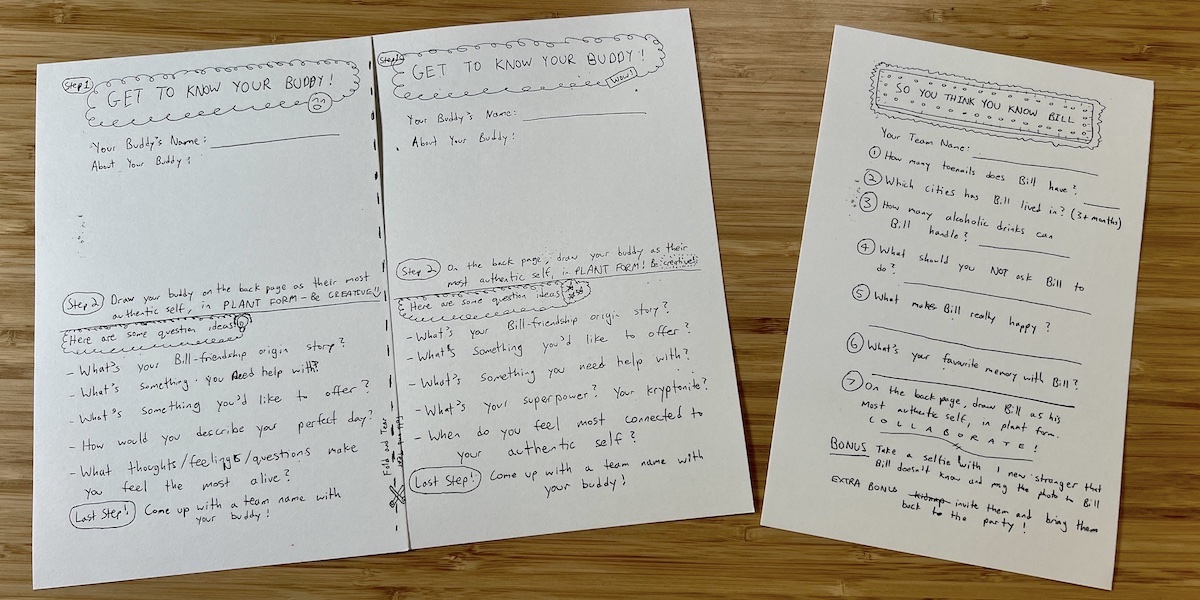 Step 1
GET TO KNOW YOUR BUDDY!
Your Buddy's Name:
About Your Buddy:
Step 2 Draw your buddy on the back page as their most
authentic self, in PLANT FORM - Be CREATIVE!!
Here are some question ideas
- What's your Bill-friendship origin story?
- What's something you need help with?
- What's something you'd like to offer?
- How would you describe your perfect day?
- What thoughts/feelings/questions make
you feel the most alive?
Last Step! Come up with a team name with
your buddy!
Fold and Tear
Step 1
GET TO KNOW YOUR BUDDY!
WOW!
Your Buddy's Name:
About Your Buddy:
Step 2 On the back page, draw your buddy as their
most authentic self, in PLANT FORM! Be creative!
Here are some question ideas
- What's your Bill-friendship origin story?
- What's something you'd like to offer?
- What's something you need help with?
- What's your superpower? Your kryptonite?
- When do you feel most connected to
your authentic self?
Last Step! Come up with a team name with
your buddy!
SO YOU THINK YOU KNOW BILL
Your Team Name:
1 How many toenails does Bill have?
2 Which cities has Bill lived in? (3+ months)
3 How many alcoholic drinks can
Bill handle?
4 What should you NOT ask Bill to
do?
5 What makes Bill really happy?
6 What's your favourite memory with Bill?
7 On the back page, draw Bill as his
most authentic self, in plant form.
COLLABORATE!
BONUS Take a selfie with 1 new stranger that
Bill doesn't know and msg the photo to Bill
EXTRA BONUS kidnap invite them and bring them
back to the party!